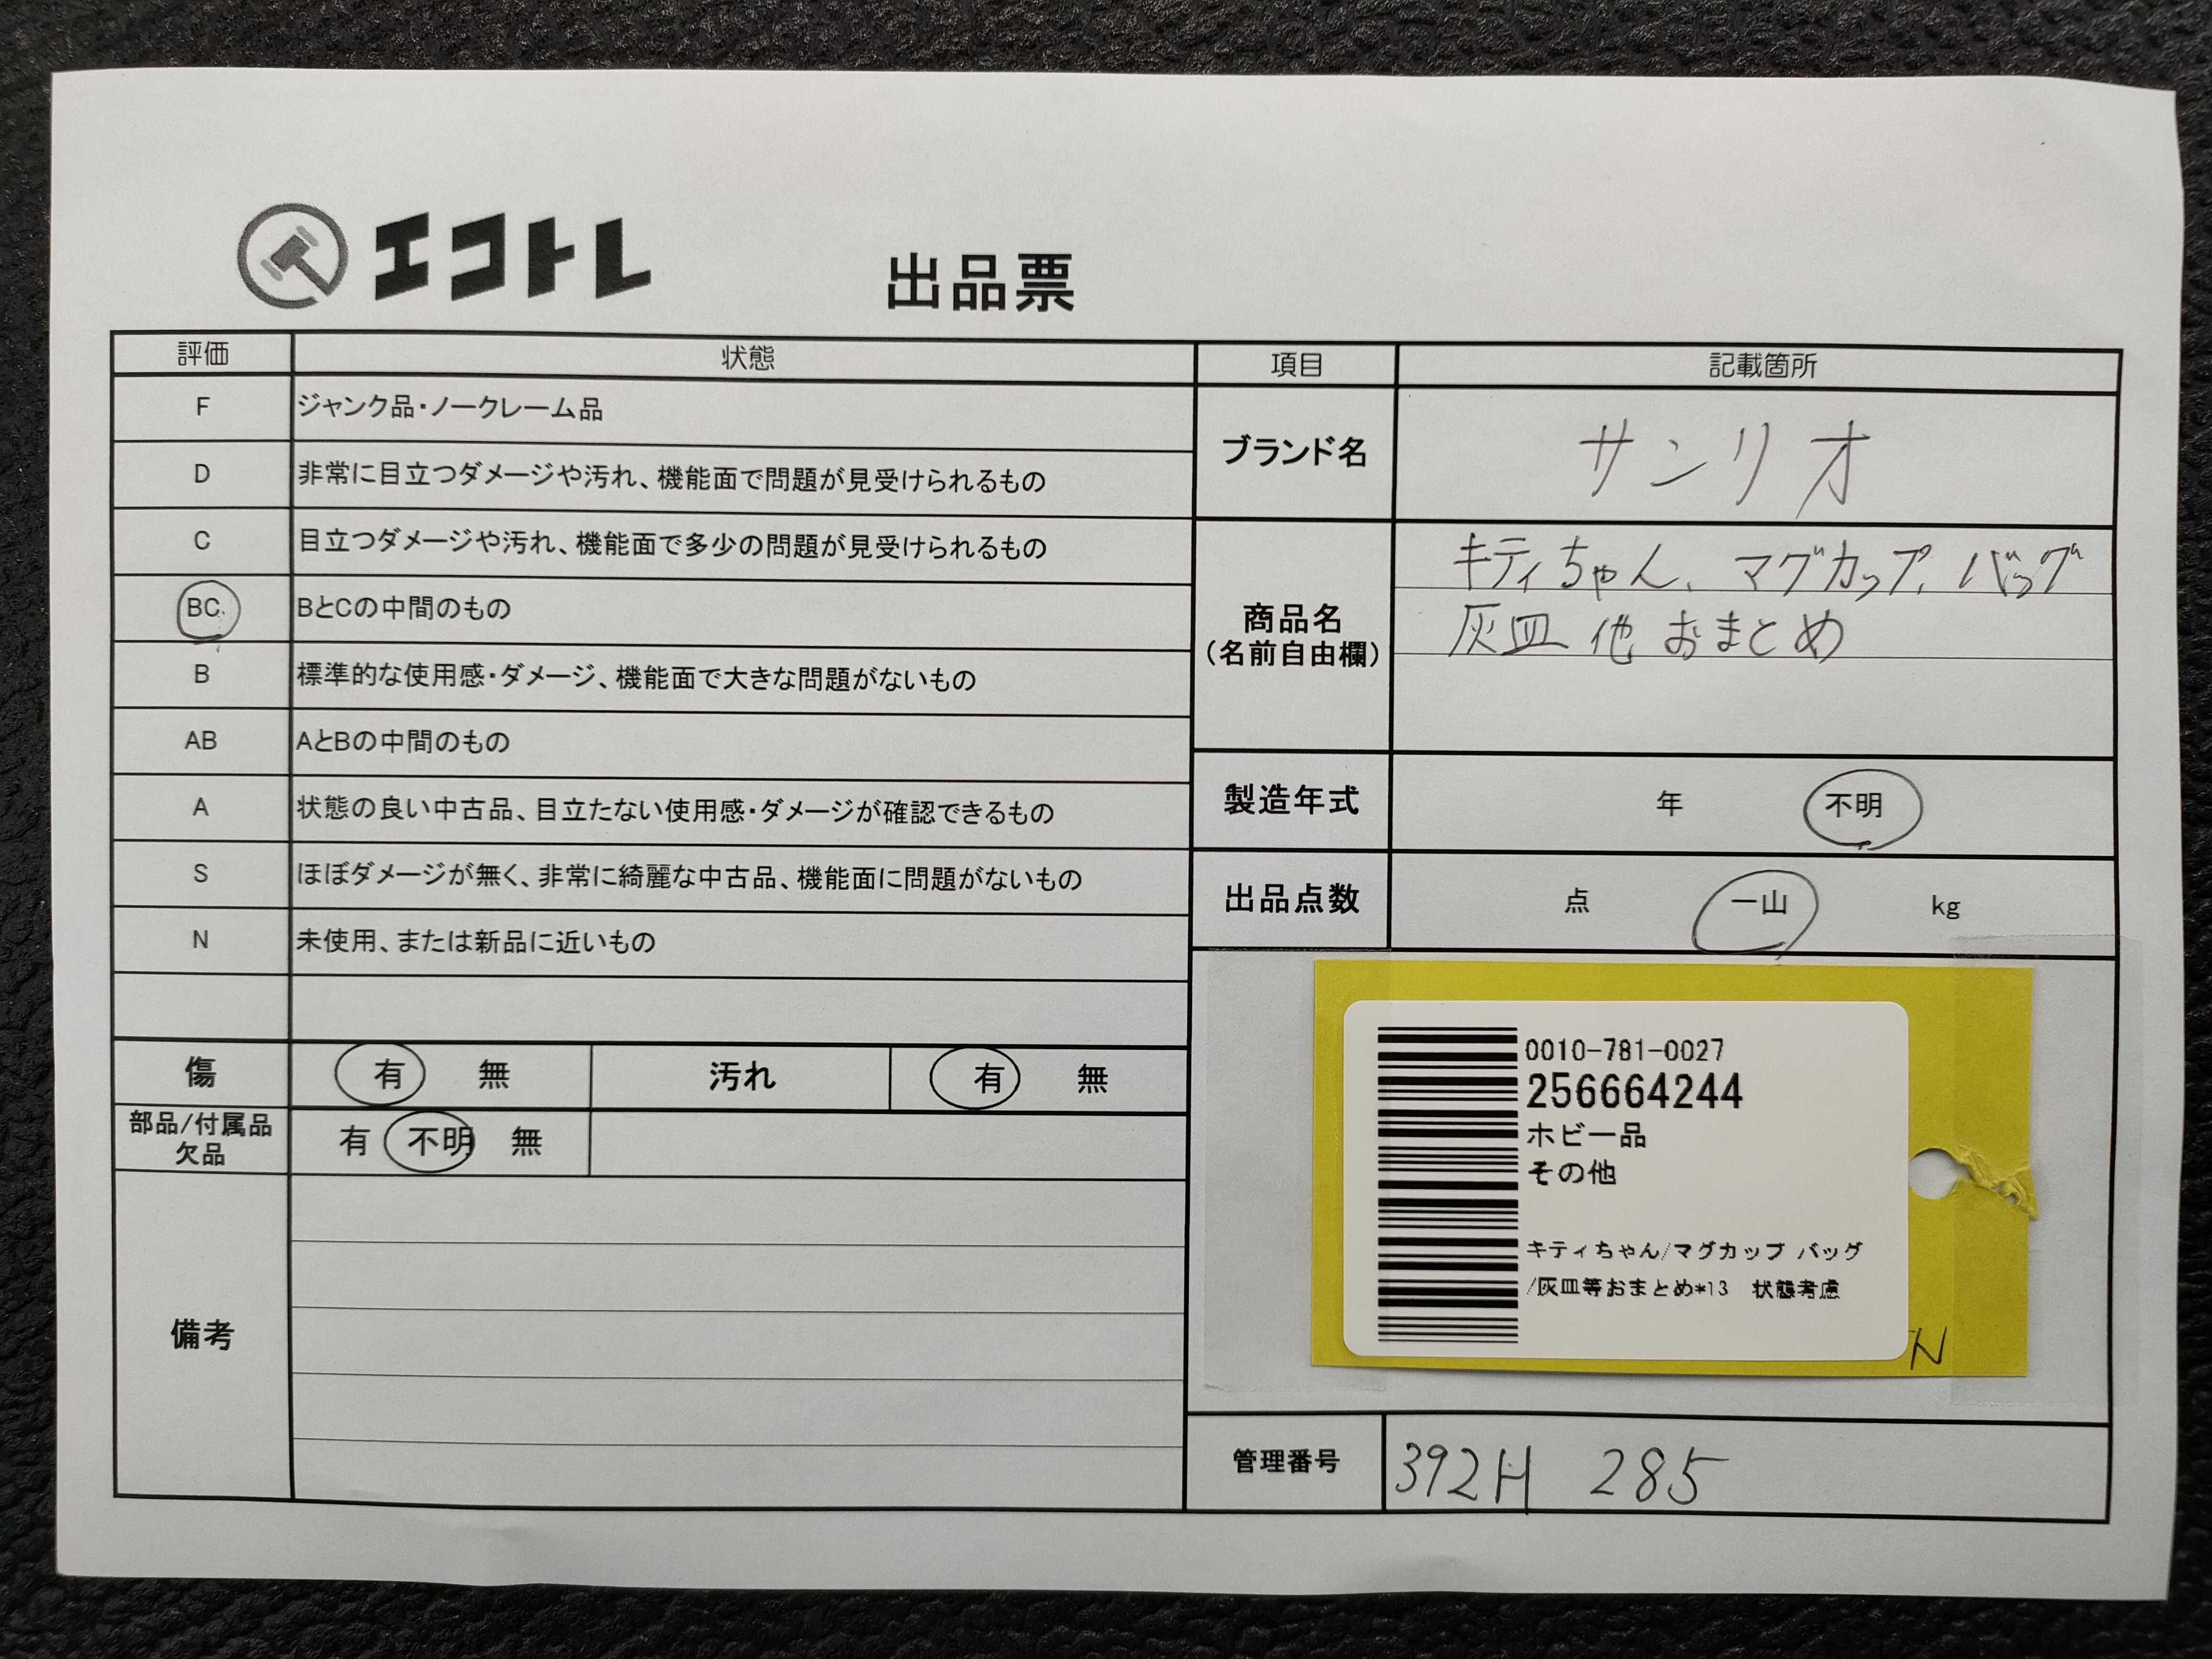 エコトレ
出品票
評価 状態
F ジャンク品・ノークレーム品
D 非常に目立つダメージや汚れ、機能面で問題が見受けられるもの
C 目立つダメージや汚れ、機能面で多少の問題が見受けられるもの
BC BとCの中間のもの
B 標準的な使用感・ダメージ、機能面で大きな問題がないもの
AB AとBの中間のもの
A 状態の良い中古品、目立たない使用感・ダメージが確認できるもの
S ほぼダメージが無く、非常に綺麗な中古品、機能面に問題がないもの
N 未使用、または新品に近いもの
傷 有 無 汚れ 有 無
部品/付属品
欠品
有 不明 無
備考
項目 記載箇所
ブランド名 サンリオ
商品名
(名前自由欄)
キティちゃん、マグカップ、バッグ
灰皿 他 おまとめ
製造年式 年 不明
出品点数 点 一山 kg
0010-781-0027
256664244
ホビー品
その他
キティちゃん/マグカップ バッグ
/灰皿等おまとめ*13 状態考慮
N
管理番号 392H 285